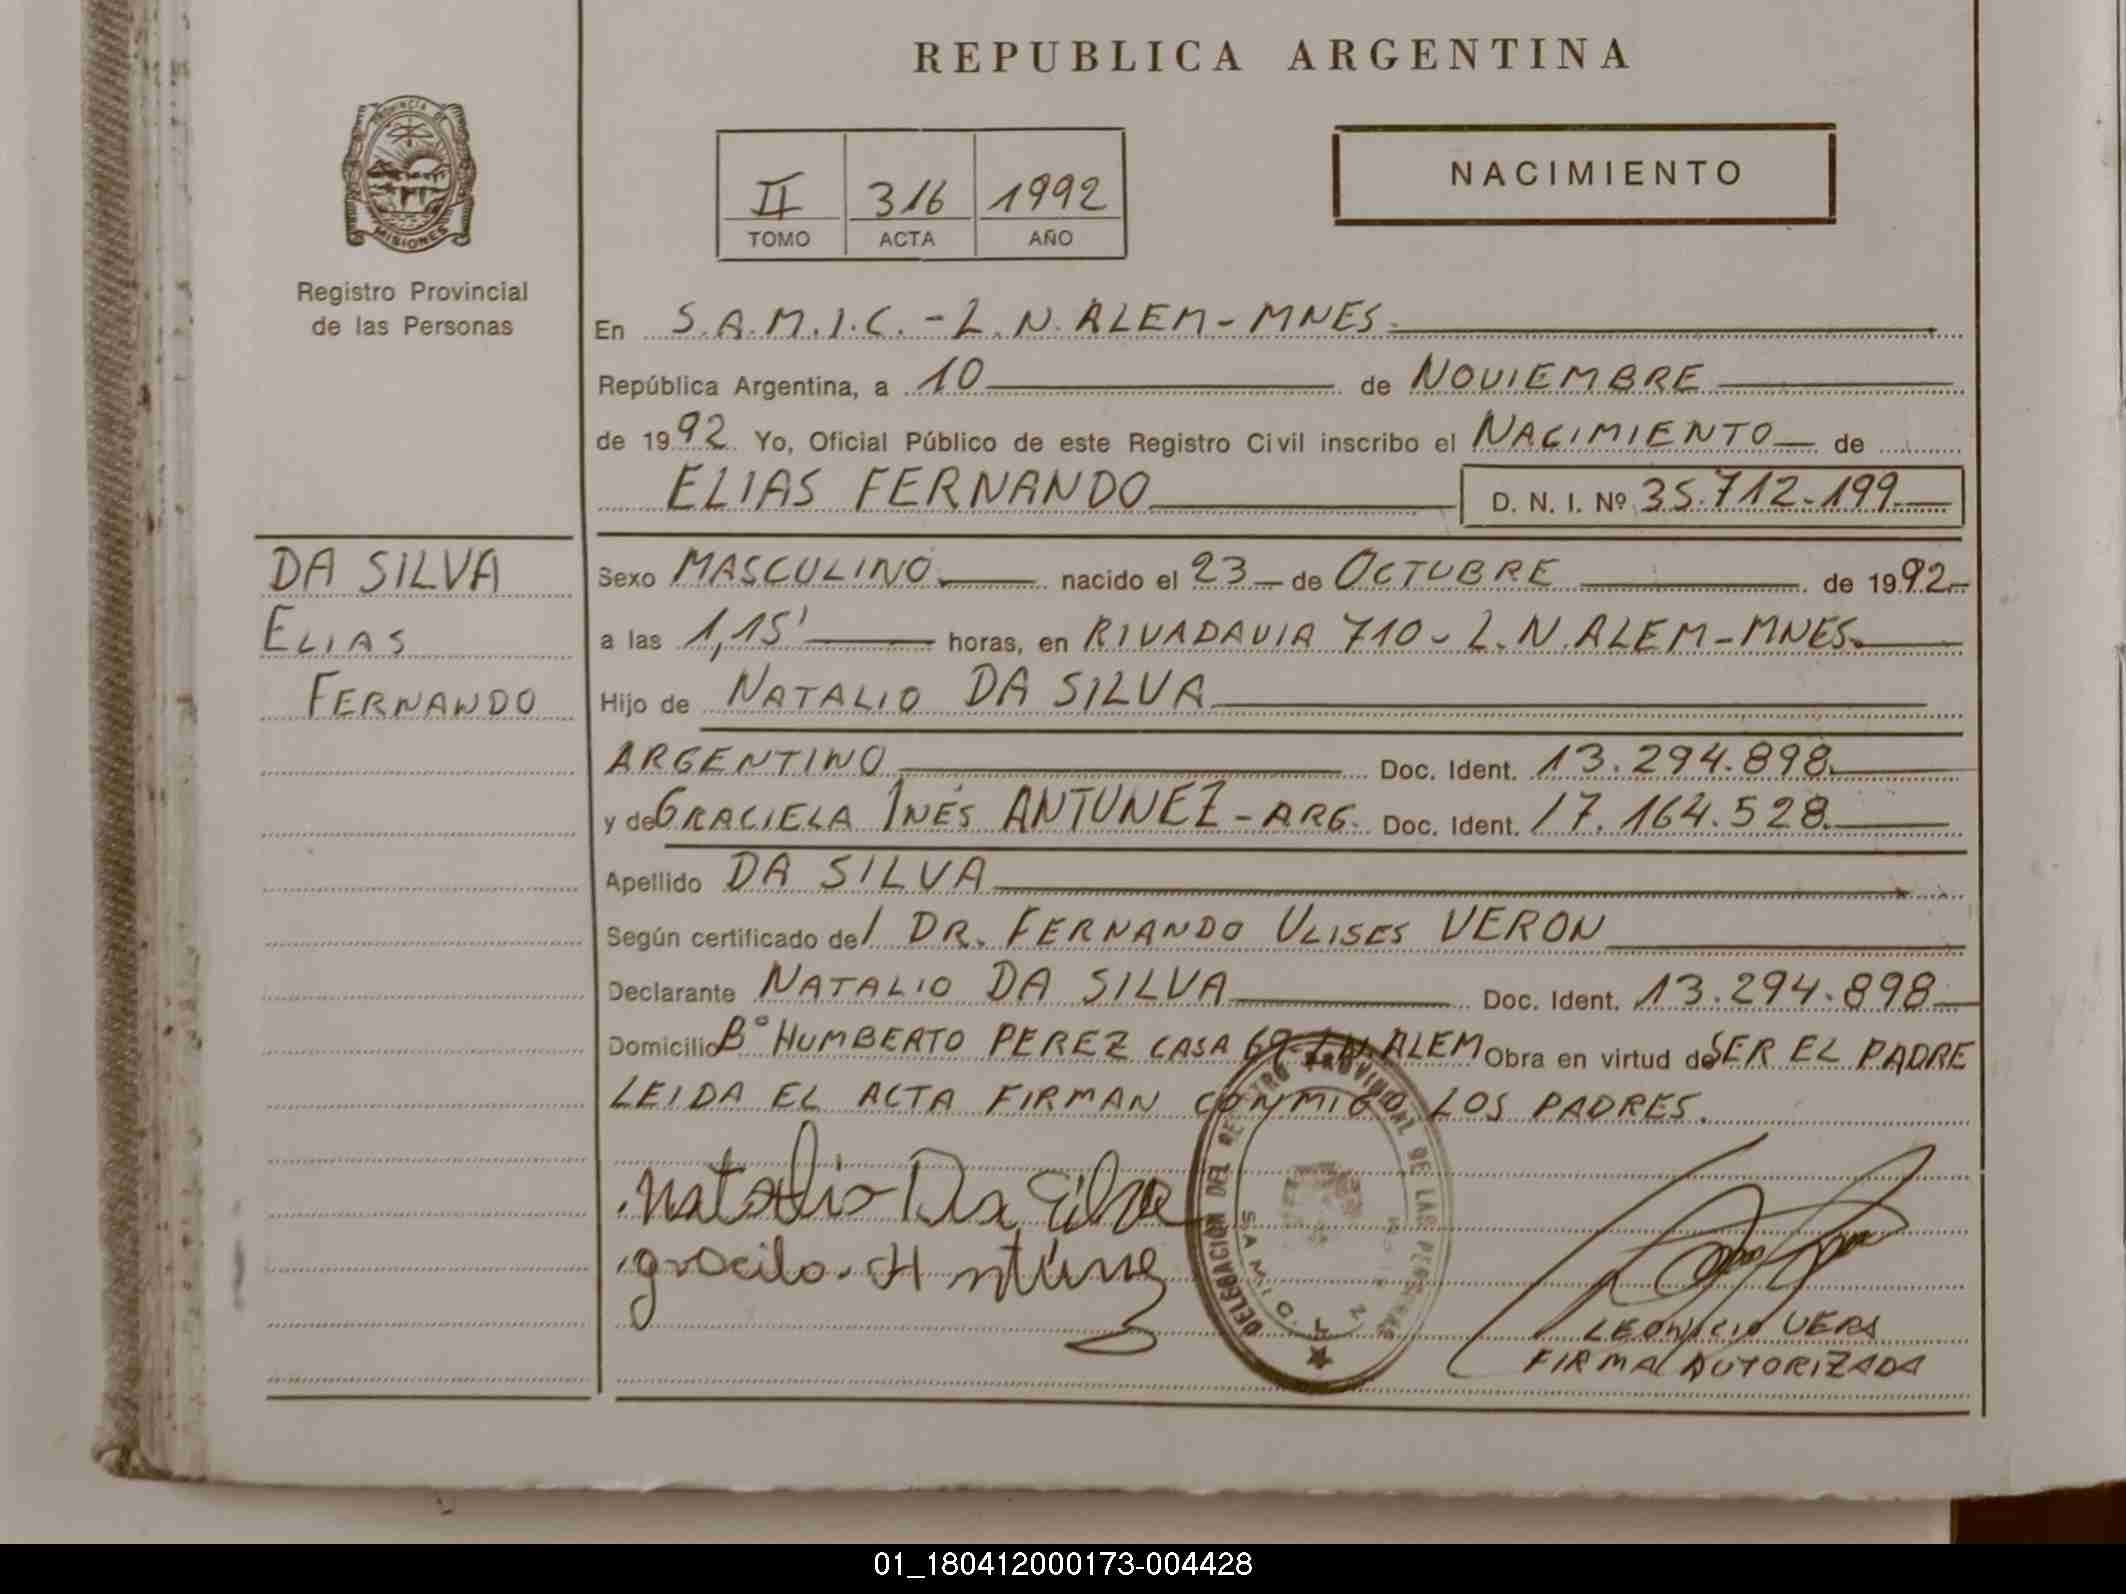 REPUBLICA ARGENTINA
PROVINCIA DE
MISIONES
Registro Provincial
de las Personas
II 316 1992
TOMO ACTA AÑO
NACIMIENTO
En S.A.M.I.C. - L.N. ALEM - MNES.
República Argentina, a 10 de NOVIEMBRE
de 1992 Yo, Oficial Público de este Registro Civil inscribo el NACIMIENTO de
ELIAS FERNANDO D. N. I. Nº 35.712.199
DA SILVA
ELIAS
FERNANDO
Sexo MASCULINO nacido el 23 de OCTUBRE de 1992
a las 1,15' horas, en RIVADAVIA 710 - L.N. ALEM - MNES.
Hijo de NATALIO DA SILVA
ARGENTINO Doc. Ident. 13.294.898
y de GRACIELA INÉS ANTUNEZ - ARG. Doc. Ident. 17.164.528
Apellido DA SILVA
Según certificado del DR. FERNANDO ULISES VERON
Declarante NATALIO DA SILVA Doc. Ident. 13.294.898
Domicilio Bº HUMBERTO PEREZ CASA 69 - L.N. ALEM Obra en virtud de SER EL PADRE
LEIDA EL ACTA FIRMAN CONMIGO LOS PADRES.
Natalio Da Silva
DELEGACION DEL REGISTRO PROVINCIAL DE LAS PERSONAS
S.A.M.I.C.
LEONICIO VERA
FIRMA AUTORIZADA
01_180412000173-004428